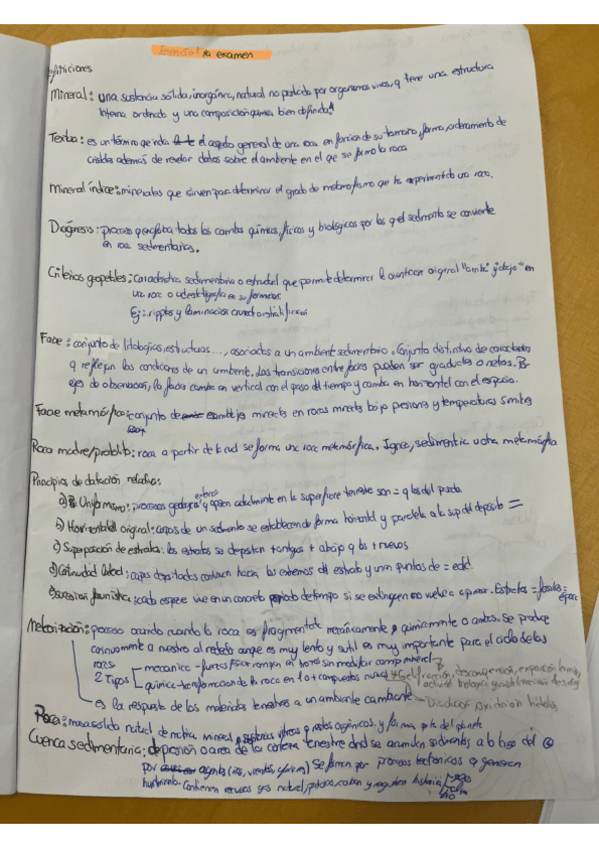 pa examen
Definiciones
Mineral: una sustancia sólida, inorgánica, natural no producida por organismos vivos, q tiene una estructura
interna ordenada y una composición química bien definida
Textura: es un término que indica el aspecto general de una roca en funcion de su tamaño, forma, ordenamiento de
cristales además de revelar datos sobre el ambiente en el qe se formó la roca
Mineral índice: minerales que sirven para determinar el grado de metamorfismo que ha experimentado una roca.
Diagénesis: proceso que engloba todos los cambios químicos, físicos y biológicos por los q el sedimento se convierte
en roca sedimentarias.
Criterios geopetales: Característica sedimentaria o estructural que permite determinar la orientacion original "arriba" y "abajo" en
una roca o en su formacion
Ej: ripples y laminacion
Facie: conjunto de litologías, estructuras..., asociadas a un ambiente sedimentario. Conjunto distintivo de características
q reflejan las condiciones de un ambiente. Las transiciones entre facies pueden ser graduales o netas. Por
ejes de observación, la facies cambia en vertical con el paso del tiempo y cambia en horizontal con el espacio.
Facie metamórfica: conjunto de minerales en rocas bajo presiones y temperaturas similares
Roca madre/protolito: roca a partir de la cual se forma una roca metamórfica. Ignea, sedimentaria u otra metamórfica
Principios de datación relativa:
a) Uniformismo: procesos geológicos q operan actualmente en la superficie terrestre son = q los del pasado
b) Horizontalidad original: capas de un sedimento se establecen de forma horizontal y paralela a la sup del deposito =
c) Superposición de estratos: los estratos se depositan + antiguos + abajo q los + nuevos
d) Continuidad lateral: capas depositadas continuan hacia los extremos del estrato y unen puntos de = edad.
Sucesion faunistica: cada especie vive en un concreto periodo de tiempo si se extinguen no vuelve a aparecer. Estratos = fosiles =
época
Meteorización: proceso ocurrido cuando la roca es fragmentada mecánicamente, químicamente o ambos. Se produce
continuamente a nuestro al rededor aunque es muy lento y sutil es muy importante para el ciclo de las
rocas
2 Tipos
mecanica - fuerzas físicas rompen en trozos sin modificar comp mineral
química - transformacion de la roca en 1 o + compuestos nuevos
Gelifracción, descompresión, expansión térmica,
actividad biológica
es la respuesta de los materiales terrestres a un ambiente cambiante
Disolucion oxidacion hidrolisis
Roca: masa sólida natural de materia mineral, vítreos y restos orgánicos. y forma parte del planeta
Cuenca sedimentaria: depresión o area de la corteza terrestre dnd se acumulan sedimentos a lo largo del
por agentes (ríos, vientos, glaciares) Se forman por procesos tectónicos q generan
hundimiento. Contienen recursos gas natural, petroleo, carbon y registran historia